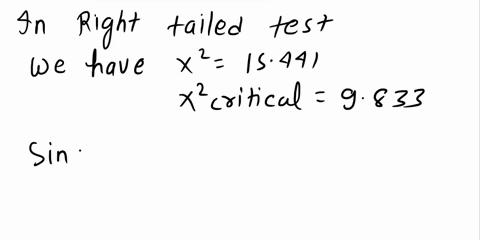 In Right tailed test
we have x² = 15.441
x² critical = 9.833
Sin